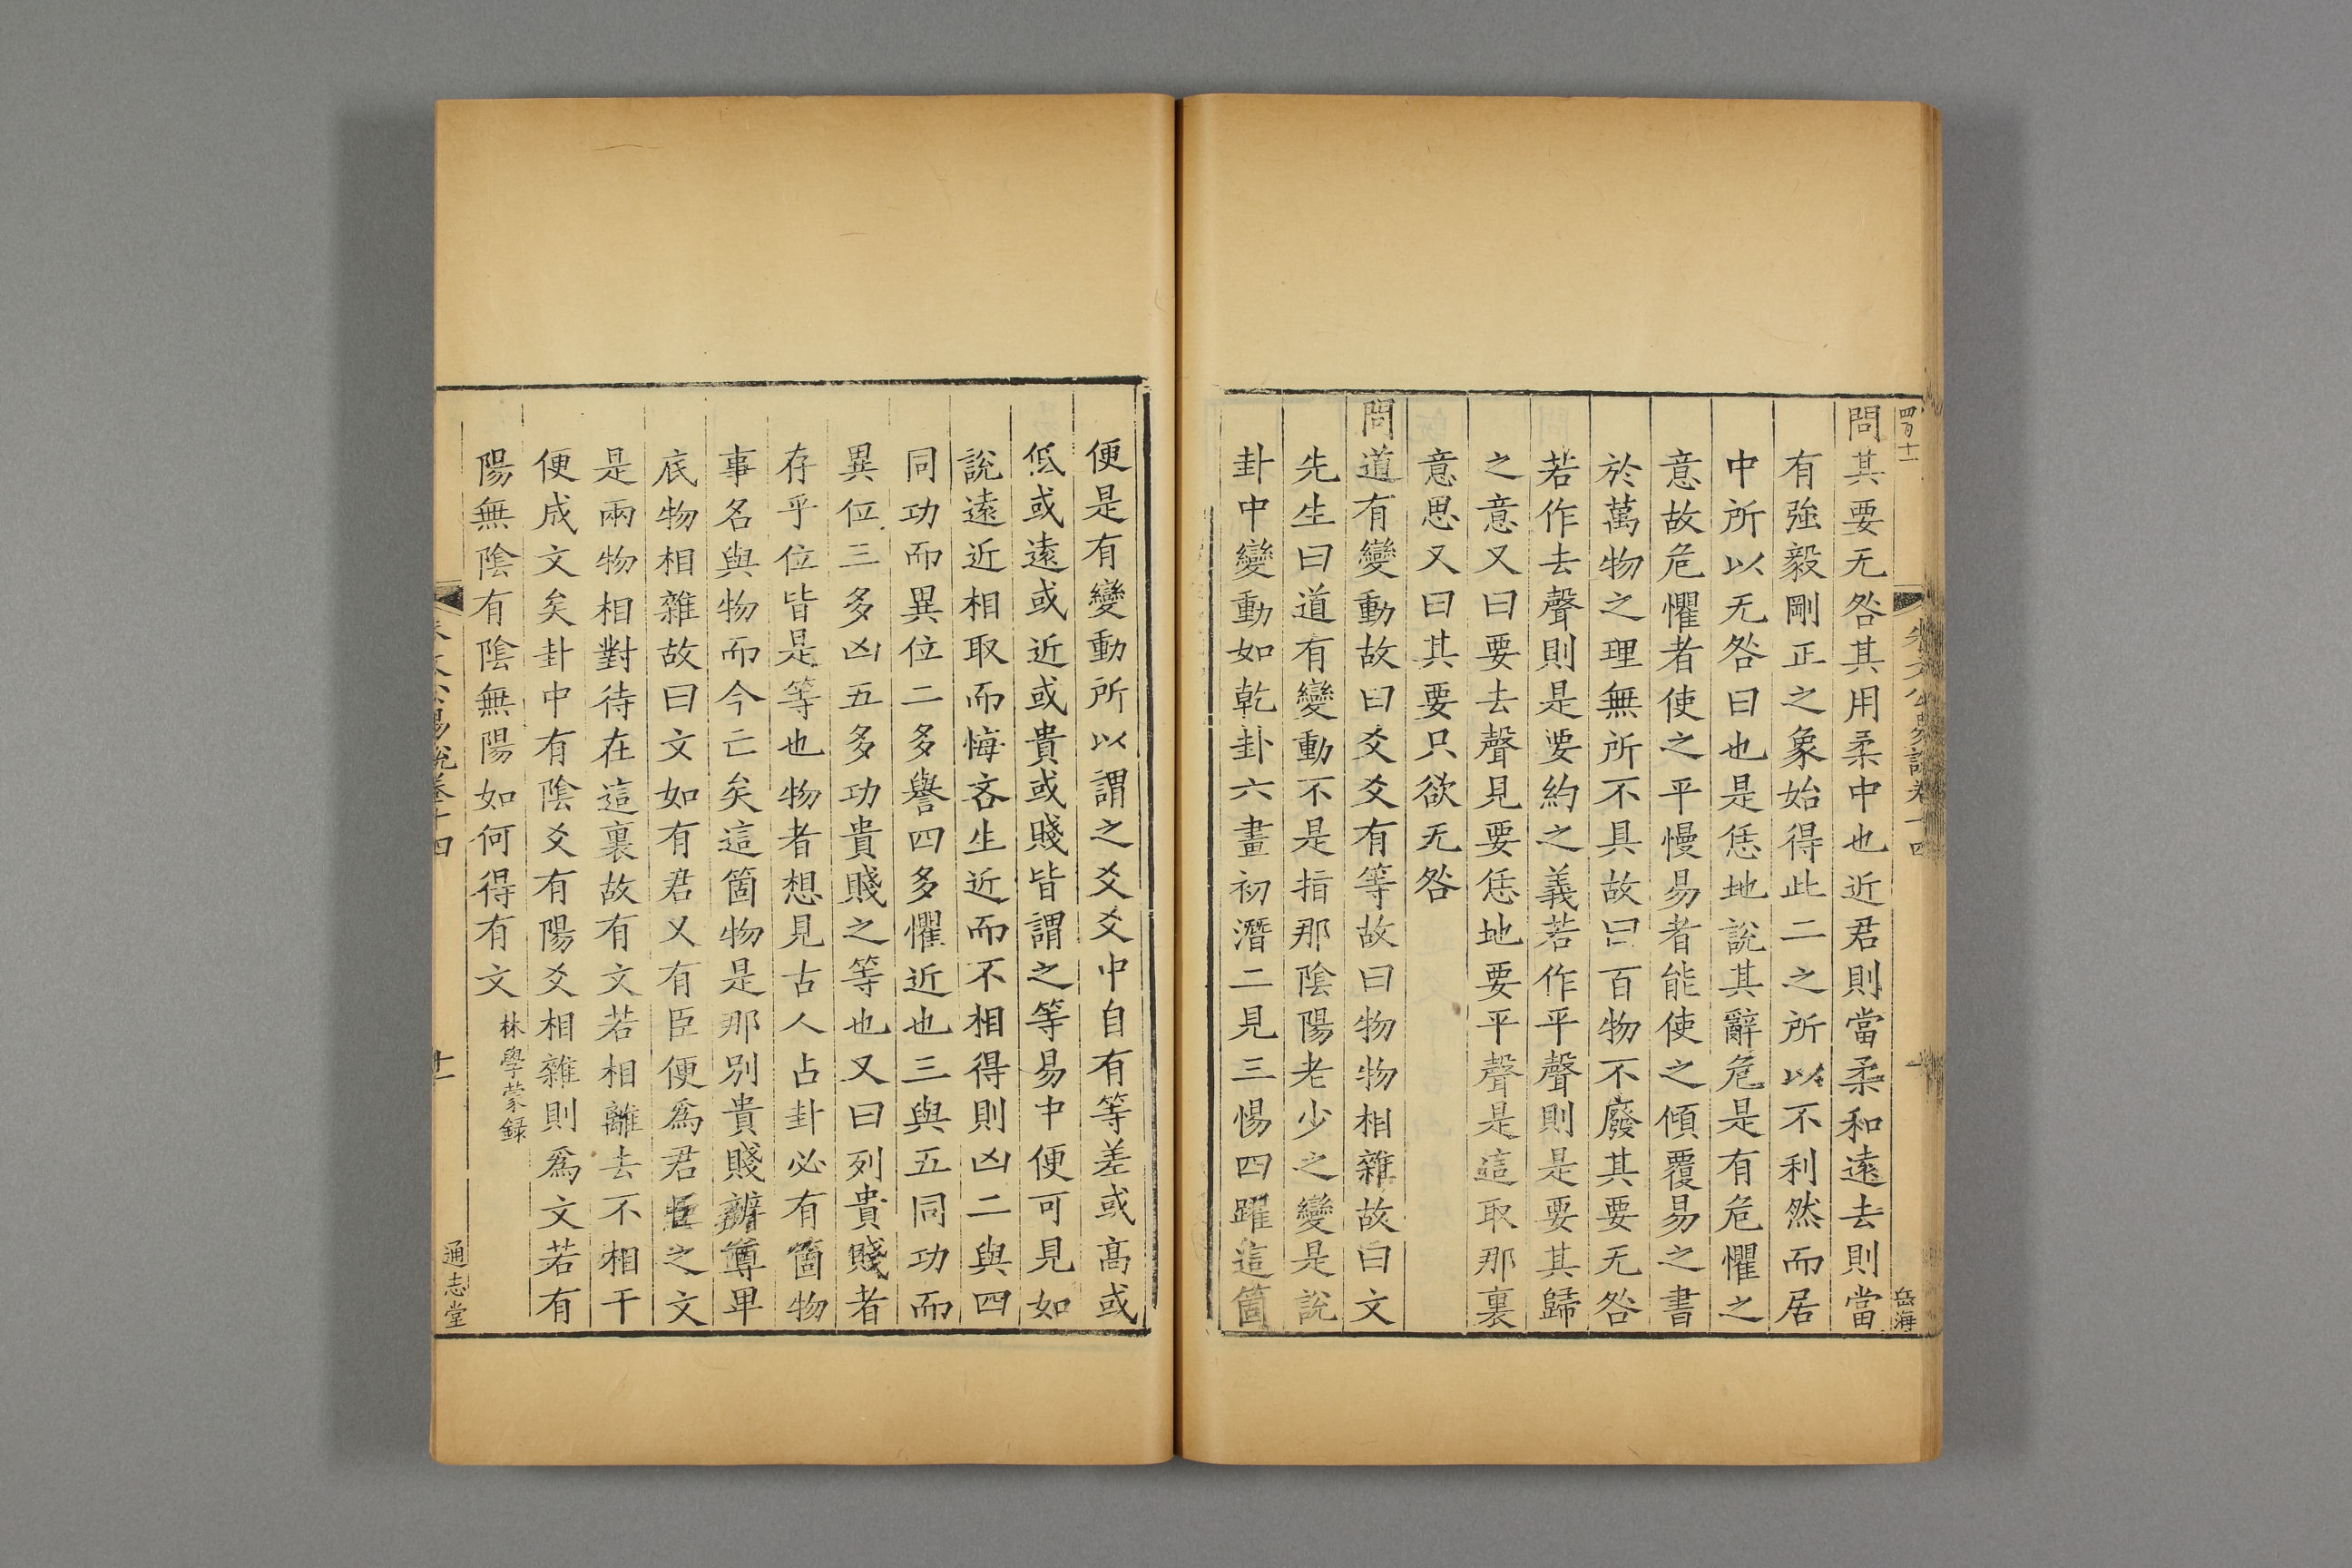 問其要无咎其用柔中也近君則當柔和遠去則當
有強毅剛正之象始得此二之所以不利然而居
中所以无咎曰也是恁地說其辭危是有危懼之
意故危懼者使之平慢易者能使之傾覆易之書
於萬物之理無所不具故曰百物不廢其要无咎
若作去聲則是要約之義若作平聲則是要其歸
之意又曰要去聲見要恁地要平聲是這取那裏
意思又曰其要只欲无咎
問道有變動故曰爻爻有等故曰物物相雜故曰文
先生曰道有變動不是指那陰陽老少之變是說
卦中變動如乾卦六畫初潛二見三惕四躍這箇
便是有變動所以謂之爻爻中自有等差或高或
低或遠或近或貴或賤皆謂之等易中便可見如
說遠近相取而悔吝生近而不相得則凶二與四
同功而異位二多譽四多懼近也三與五同功而
異位三多凶五多功貴賤之等也又曰列貴賤者
存乎位皆是等也物者想見古人占卦必有箇物
事名與物而今亡矣這箇物是那別貴賤辨尊卑
底物相雜故曰文如有君又有臣便為君臣之文
是兩物相對待在這裏故有文若相離去不相干
便成文矣卦中有陰爻有陽爻相雜則為文若有
陽無陰有陰無陽如何得有文 林學蒙錄
通志堂